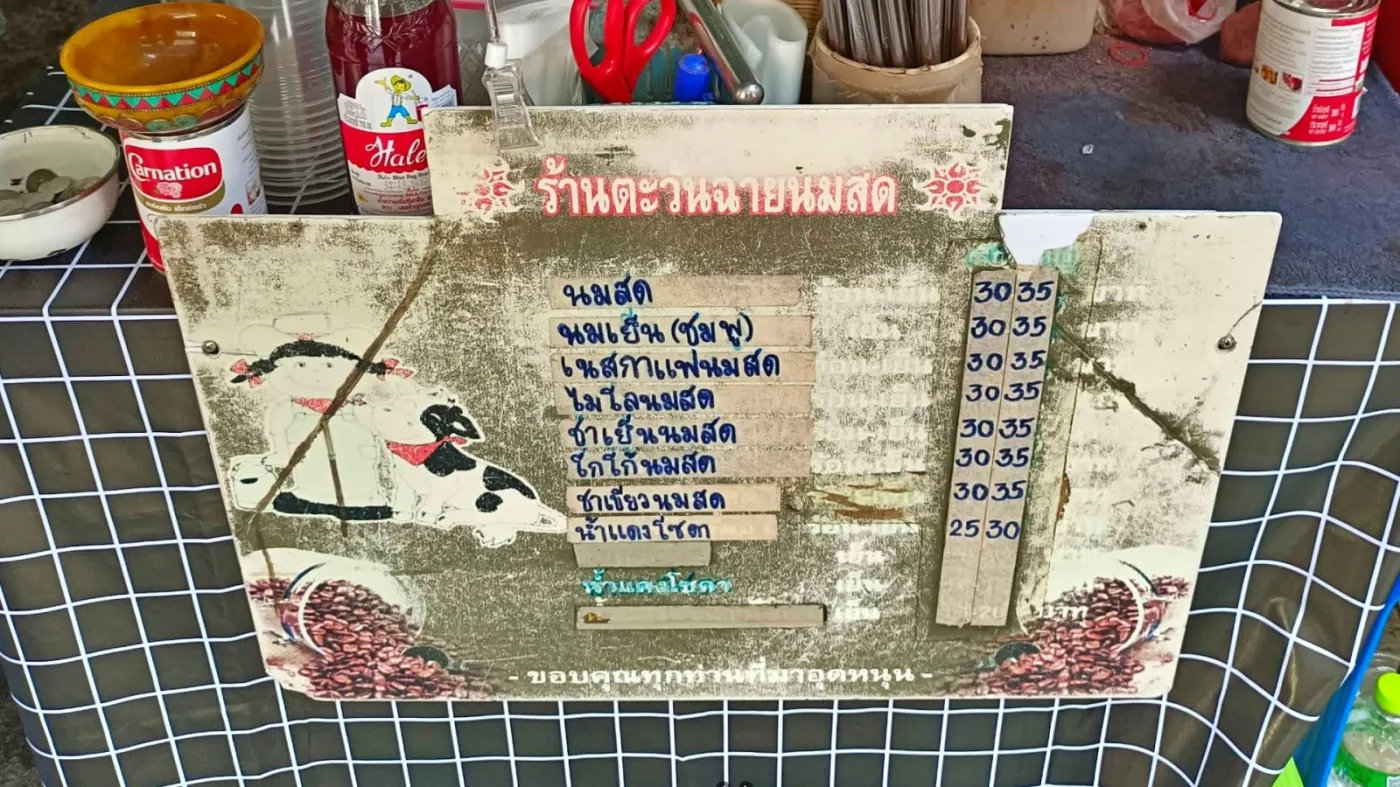 Carnation
Hale
ร้านตะวันฉายนมสด
นมสด 30 35
นมเย็น (ชมพู) 30 35
เนสกาแฟนมสด 30 35
ไมโลนมสด 30 35
ชาเย็นนมสด 30 35
โกโก้นมสด 30 35
ชาเขียวนมสด 30 35
น้ำแดงโซดา 25 30
น้ำแดงโซดา
- ขอบคุณทุกท่านที่มาอุดหนุน -